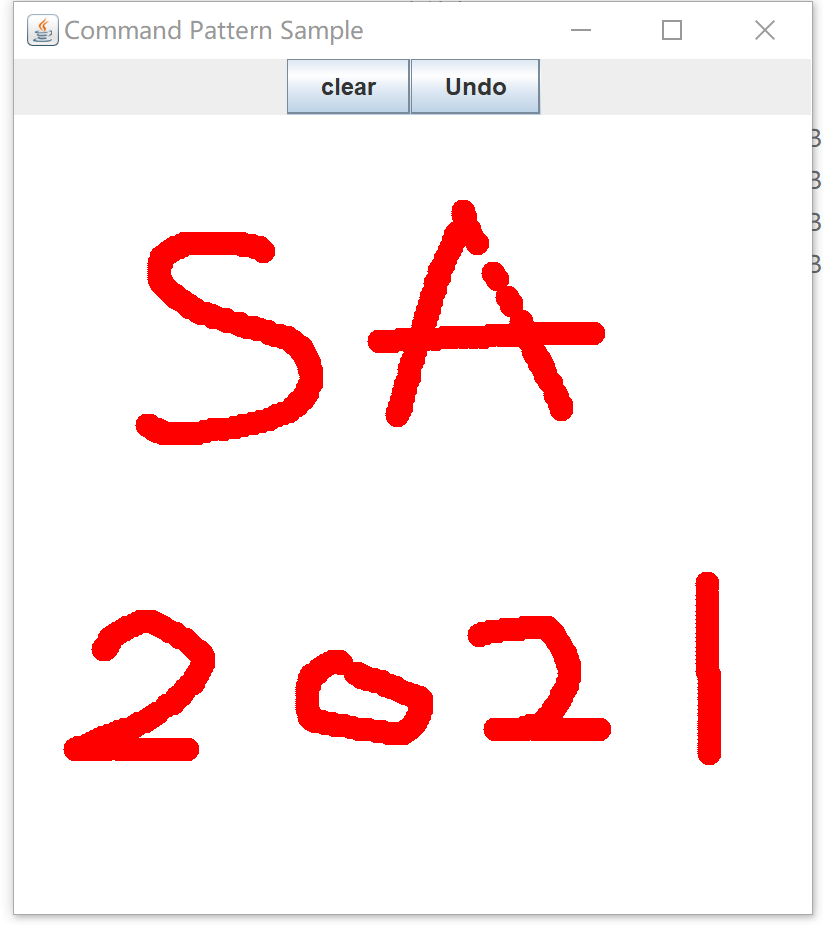 Command Pattern Sample
clear Undo
SA
2021